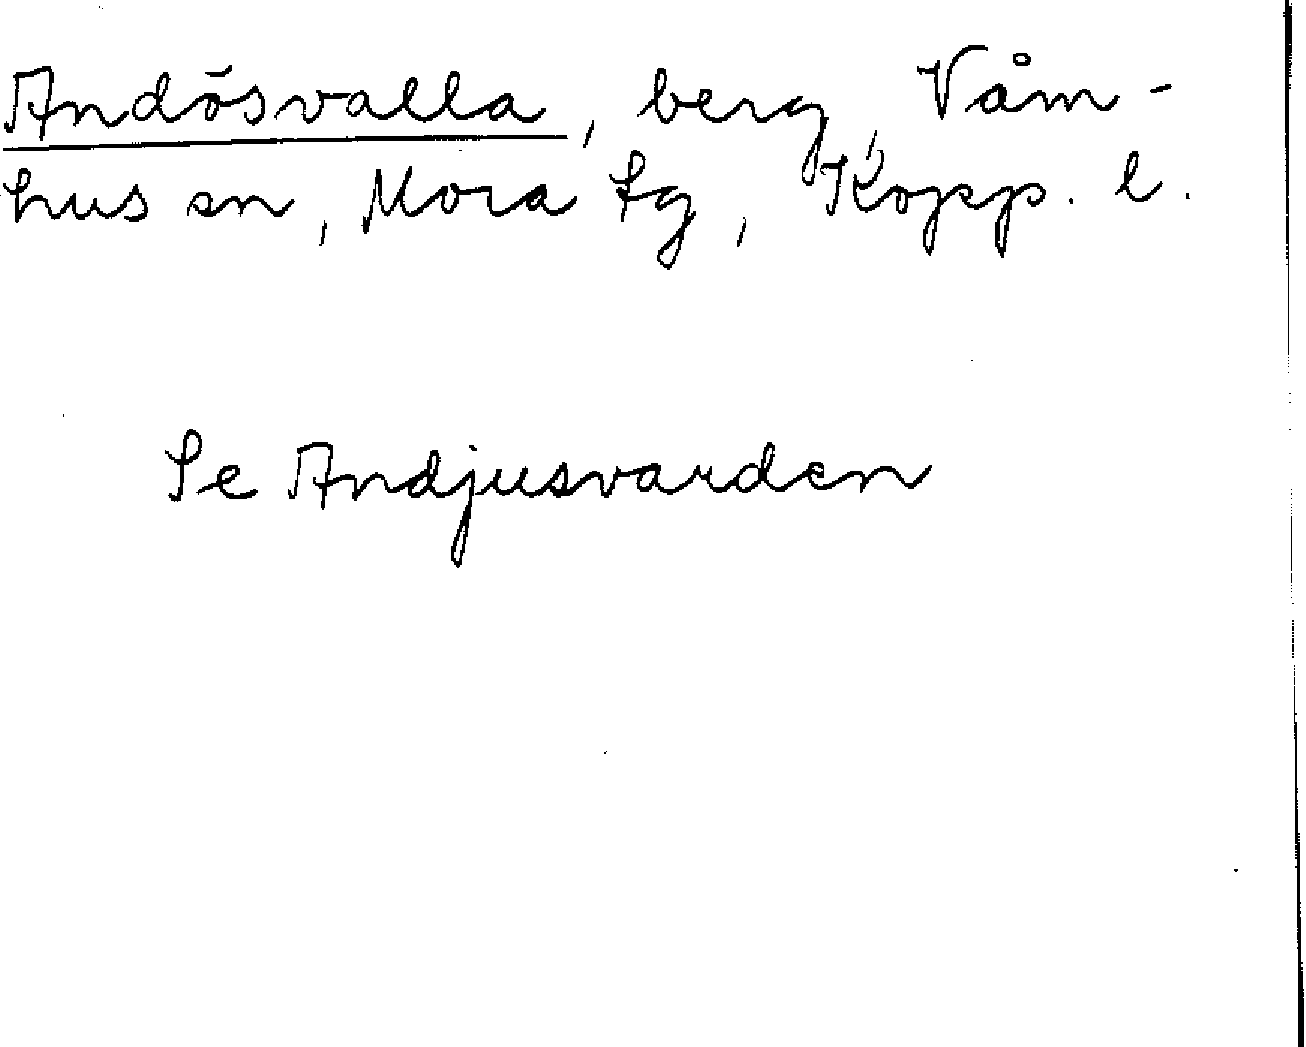 Andõsvalla, berg, Våm-
hus sn, Mora tg, Kopp. l.
Se Andjusvarden